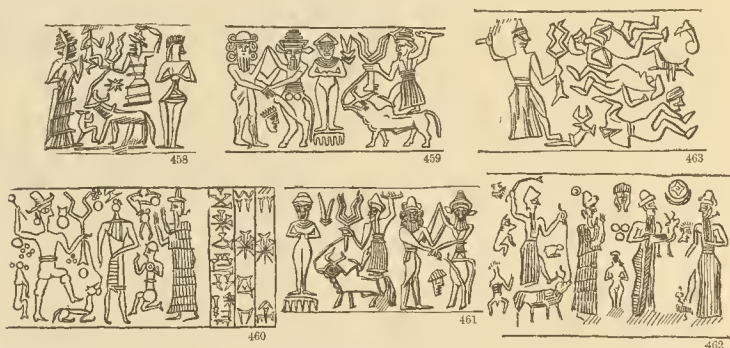 458
459
463
460
461
462